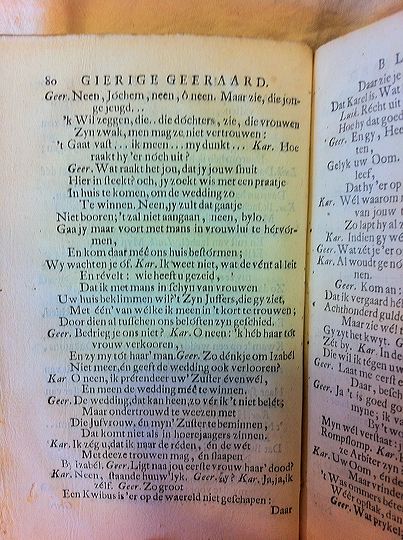 80 GIERIGE GEERAARD.
Geer. Neen, Jochem, neen, ô neen. Maar zie, die jon-
ge jeugd...
'k Wil zeggen, die.. die dóchters, zie, die vrouwen
Zyn zwak, men mag ze niet vertrouwen:
't Gaat vast... ik meen... my dunkt... Kar. Hoe
raakt hy 'er nóch uit?
Geer. Wat raakt het jou, dat jy jouw snuit
Hier in steekt? och, jy zoekt wis met een praatje
In huis te komen, om de wedding zo
Te winnen. Neen, jy zult dat gaatje
Niet booren; 't zal niet aangaan, neen, bylo.
Gaa jy maar voort met mans in vrouw lui te hérvór-
men,
En kom daar méé ons huis bestórmen;
Wy wachten je óf. Kar. Ik weet niet, wat de vént al leit
En révelt: wie heeft u gezeid,
Dat ik met mans in schyn van vrouwen
Uw huis beklimmen wil? 't Zyn Juffers, die gy ziet,
Met één van wélke ik meen in 't kort te trouwen;
Door dien al tusschen ons belóften zyn geschied.
Geer. Bedrieg je ons niet? Kar. O neen: 'k héb haar tót
vrouw verkooren,
En zy my tót haar' man. Geer. Zo dénkje om Izabél
Niet meer, én geeft de wedding ook verlooren?
Kar. O neen, ik préténdeer uw' Zuster évenwél,
En meen de wedding méé te winnen.
Geer. De wedding, dat kan heen, zo vér ik 't niet beléts
Maar ondertrouwd te weezen met
Die Jufvrouw, én myn' Zuster te beminnen,
Dat komt niet als in hoerejaagers zinnen.
Kar. Ik zég u, dat ik naar de réden, én de wét
Met deeze trouwen mag, én slaapen
By Izabél. Geer. Ligt naa jou eerste vrouw haar' dood?
Kar. Neen, staande huuw'lyk. Geer. Zy? Kar. Ja, ja, ik
zélf. Geer. Zo groot
Een Kwibus is 'er op de waereld niet geschapen:
Daar
B L
Daar zie je
Dat Karel is. Wat
Luik. Récht uit
Hoe hy dat goed
Geer. En gy, Hee
ten,
Gelyk uw Oom.
leef,
Dat hy 'er op
Kar. Wél waarom
van jouw
Zo lapt hy al
Kar. Indien gy wé
Geer. Wat zét je 'er o
Kar. Al woudt ge nó
nen.
Geer. Kom an:
Dat ik vergaard hé
Achthonderd gulde
Maar zie wél
Gy zyt het kwyt.
Zét by. Kar. In de
Die wil ik tégen uw
Geer. Laat me cerst
Daar, besch
Geer. Ja 't is goed
myne; ik va
By 't wo
Myn wél verstaa
Rompslomp. Kar.
ze Arbiter zyn:
Kar. Uw Oom, én de
In de ma
't Was ommers béter
Wéér opslak, dan
Geer. Wat prykel